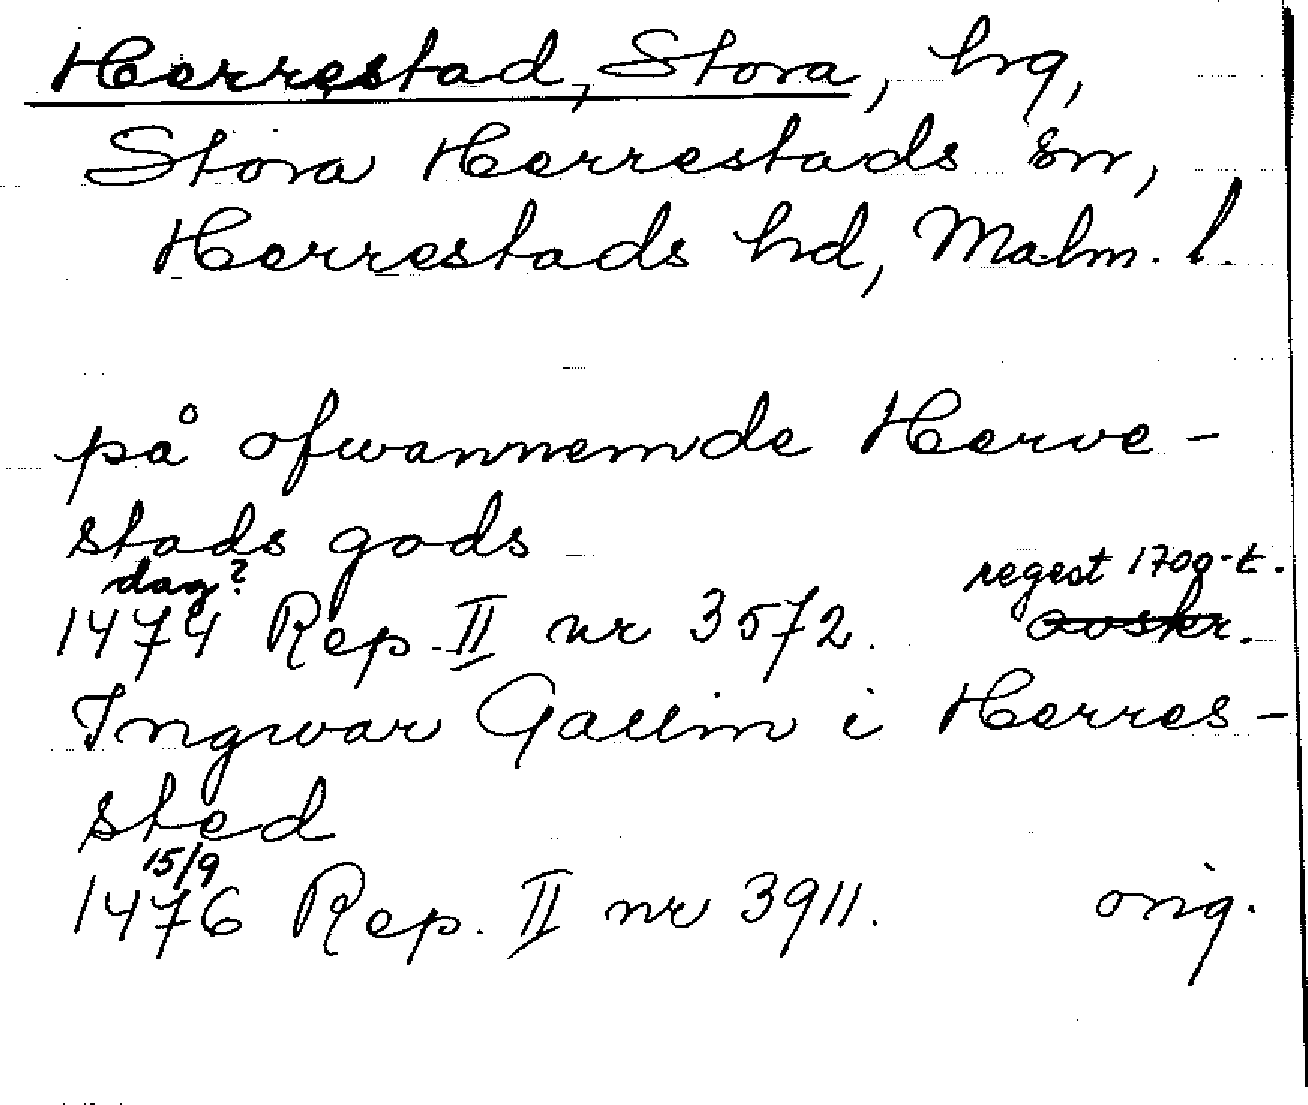 Herrestad, Stora, hg,
Stora Herrestads sn,
Herrestads hd, Malm. l.
på ofwannemde Herve-
stads gods
dag? regest 1700-t.
1474 Rep. II nr 3572. avskr.
Ingwar Gallim i Herres-
sted
15/9
1476 Rep. II nr 3911. orig.